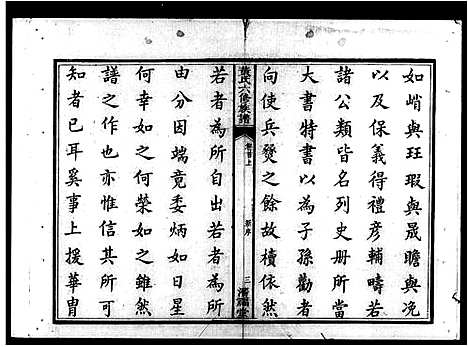 如峭與珏瑕與晟瞻與冼
以及保義得禮彥輔疇若
諸公類皆名列史册所當
大書特書以為子孫勸者
向使兵燹之餘故犢依然
氏六修族譜
卷首上
序
三
堂
若者為所自出若者為所
由分因端竟委炳如日星
何幸如之何榮如之雖然
譜之作也亦惟信其所可
知者已耳奚事上援華冑